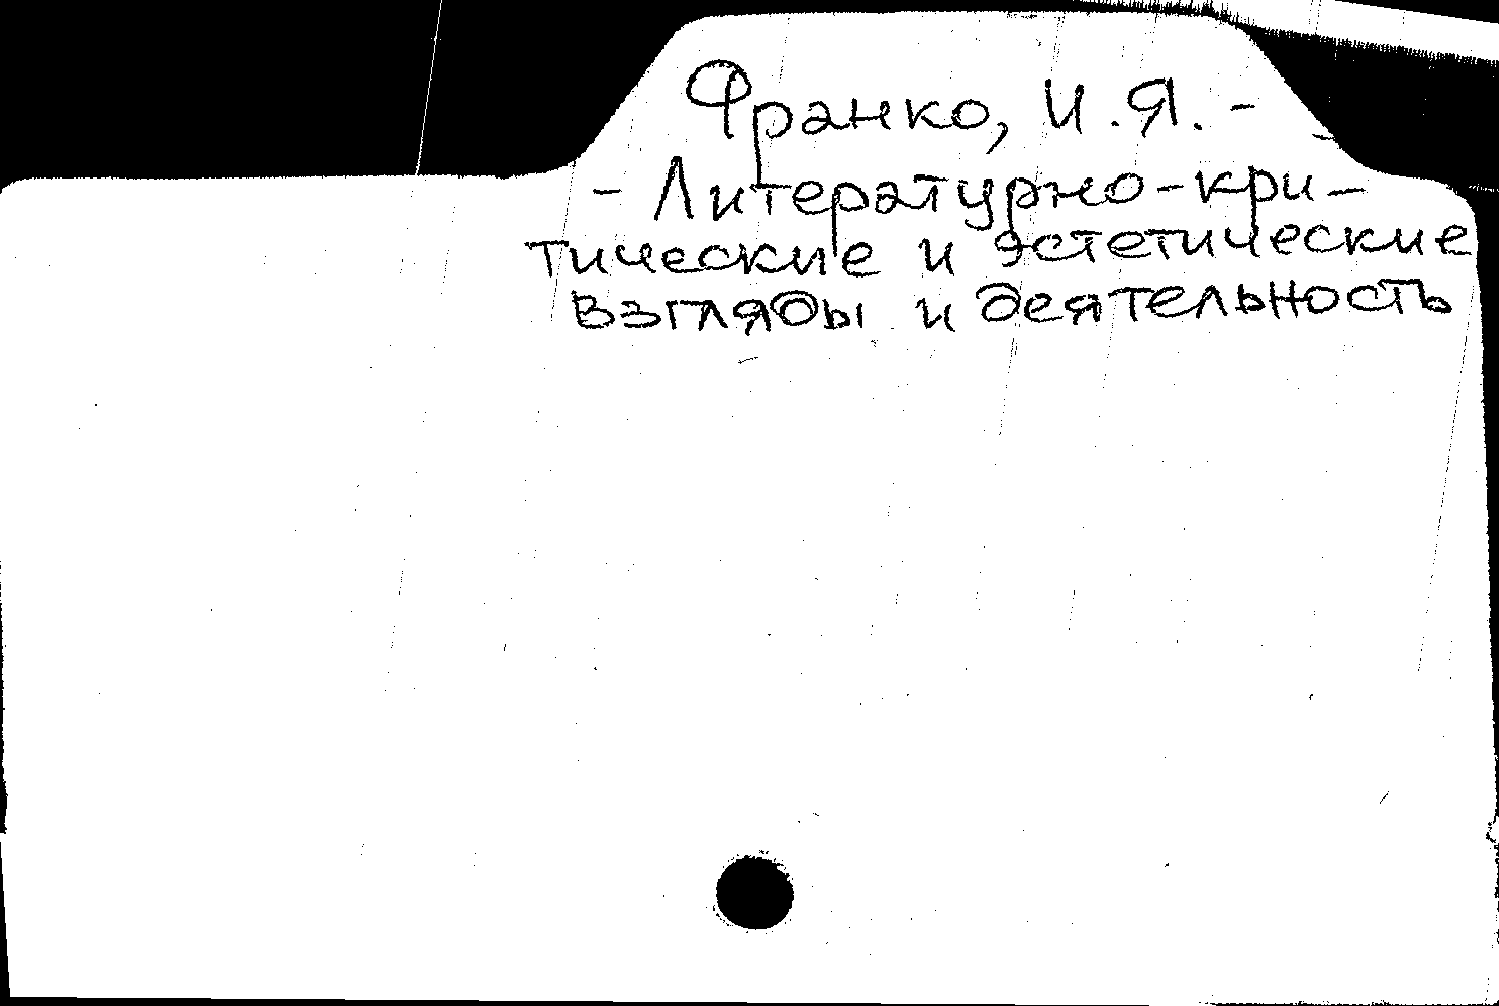 Франко, И.Я. -
- Литературно-кри-
тические и эстетические
взгляды и деятельность